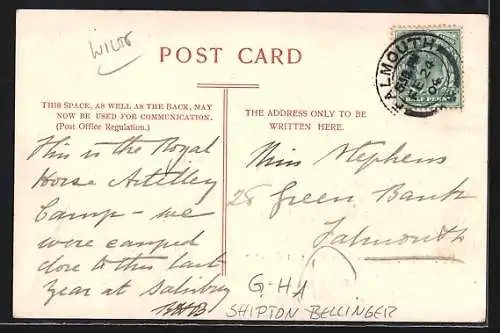 WILTS
POST CARD
THIS SPACE, AS WELL AS THE BACK, MAY
NOW BE USED FOR COMMUNICATION.
(Post Office Regulation.)
THE ADDRESS ONLY TO BE
WRITTEN HERE.
FALMOUTH
24
06
This is the Royal
Horse Artillery
Camp - we
were camped
close to this last
year at Salisbury
Miss Stephens
28 Green Bank
Falmouth
G-HA
SHIPTON BELLINGER